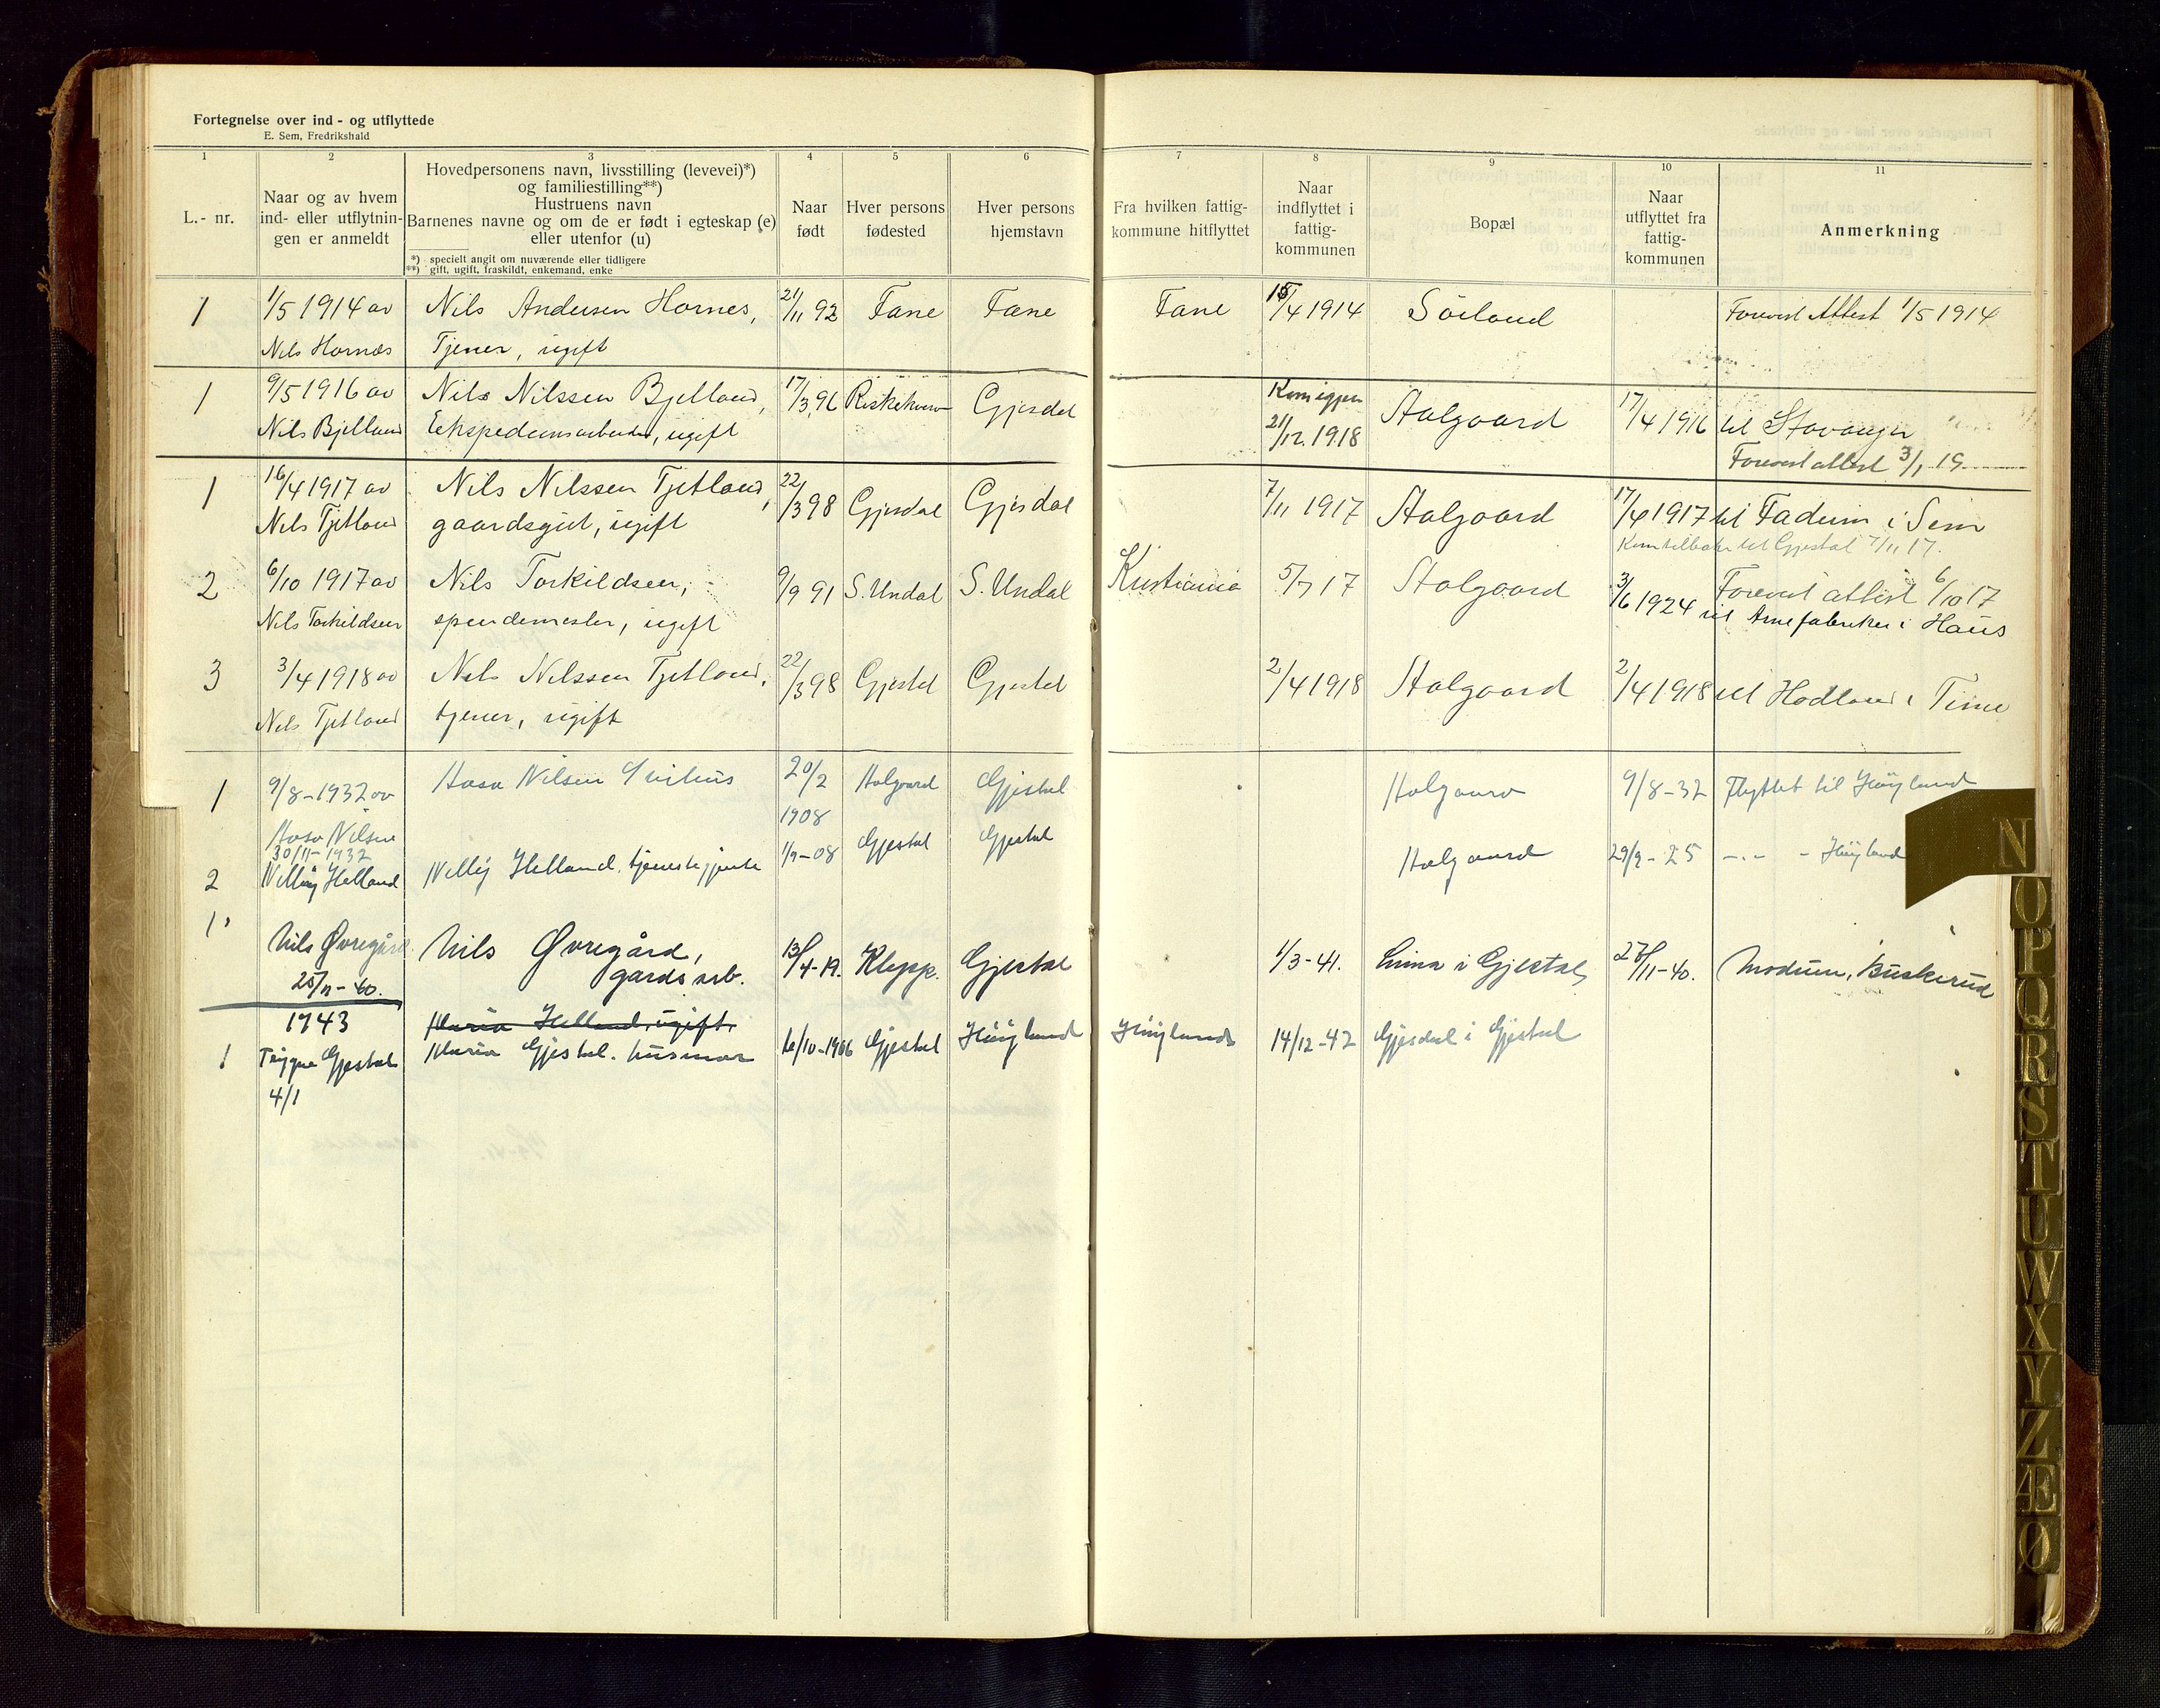 Fortegnelse over ind- og utflyttede
E. Sem, Fredrikshald
1 2 3 4 5 6 7 8 9 10 11
L.- nr.
Naar og av hvem
ind- eller utflytnin-
gen er anmeldt
Hovedpersonens navn, livsstilling (levevei)*)
og familiestilling**)
Hustruens navn
Barnenes navne og om de er født i egteskap (e)
eller utenfor (u)
*) specielt angit om nuværende eller tidligere
**) gift, ugift, fraskildt, enkemand, enke
Naar
født
Hver persons
fødested
Hver persons
hjemstavn
Fra hvilken fattig-
kommune hitflyttet
Naar
indflyttet i
fattig-
kommunen
Bopæl
Naar
utflyttet fra
fattig-
kommunen
Anmerkning
1 1/5 1914 av Nils Andersen Hornes, 21/11 92 Fane Fane Fane 15/4 1914 Söiland Forevist Attest 1/5 1914
Nils Hornæs Tjener, ugift
1 9/5 1916 av Nils Nilssen Bjelland, 17/3 96 Gjesdal Kom igjen Aalgaard 17/4 1916 til Stavanger
Nils Bjelland ugift 21/12. 1918 Forevist attest 3/1 19
1 16/4 1917 av Nils Nilssen Tjetland, 22/3 98 Gjesdal Gjesdal 7/11 1917 Aalgaard 17/4 1917 til Fadum i Sem
Nils Tjetland gaardsgut, ugift Kom tilbake til Gjestal 7/11 17.
2 6/10 1917 av Nils Torkildsen, 9/9 91 S. Undal S. Undal Kristiania 5/7 17 Aalgaard 3/6 1924 Forevist attest 6/10 17
Nils Torkildsen spindemester, ugift til Arne fabriker i Haus
3 3/4 1918 av Nils Nilssen Tjetland, 22/3 98 Gjestal Gjestal 2/4 1918 Aalgaard 2/4 1918 til Hodland i Time
Nils Tjetland tjener, ugift
1 9/8-1932 av Aasa Nilsen 20/2 Aalgaard Gjestal Aalgaard 9/8-32 Flyttet til Höyland
Aasa Nilsen 1908
30/11-1932
2 Nelly Helland Nelly Helland, tjenestegjente 1/9-08 Gjestal Gjestal Aalgaard 29/9-25 -.- - Höyland
1 Nils Øvregård Nils Øvregård, 13/4-19. Klepp. Gjestal 1/3-41. Lima i Gjestal 27/11-40. Modum, Buskerud
25/11-40. gardsarb.
1943 Maria Helland, ugift.
1 Trygve Gjestal Maria Gjestal. husmor 6/10-1906 Gjestal Höyland Höyland 14/12-42 Gjesdal i Gjestal
4/1
N
O
P
Q
R
S
T
U
W
X
Y
Z
Æ
Ø